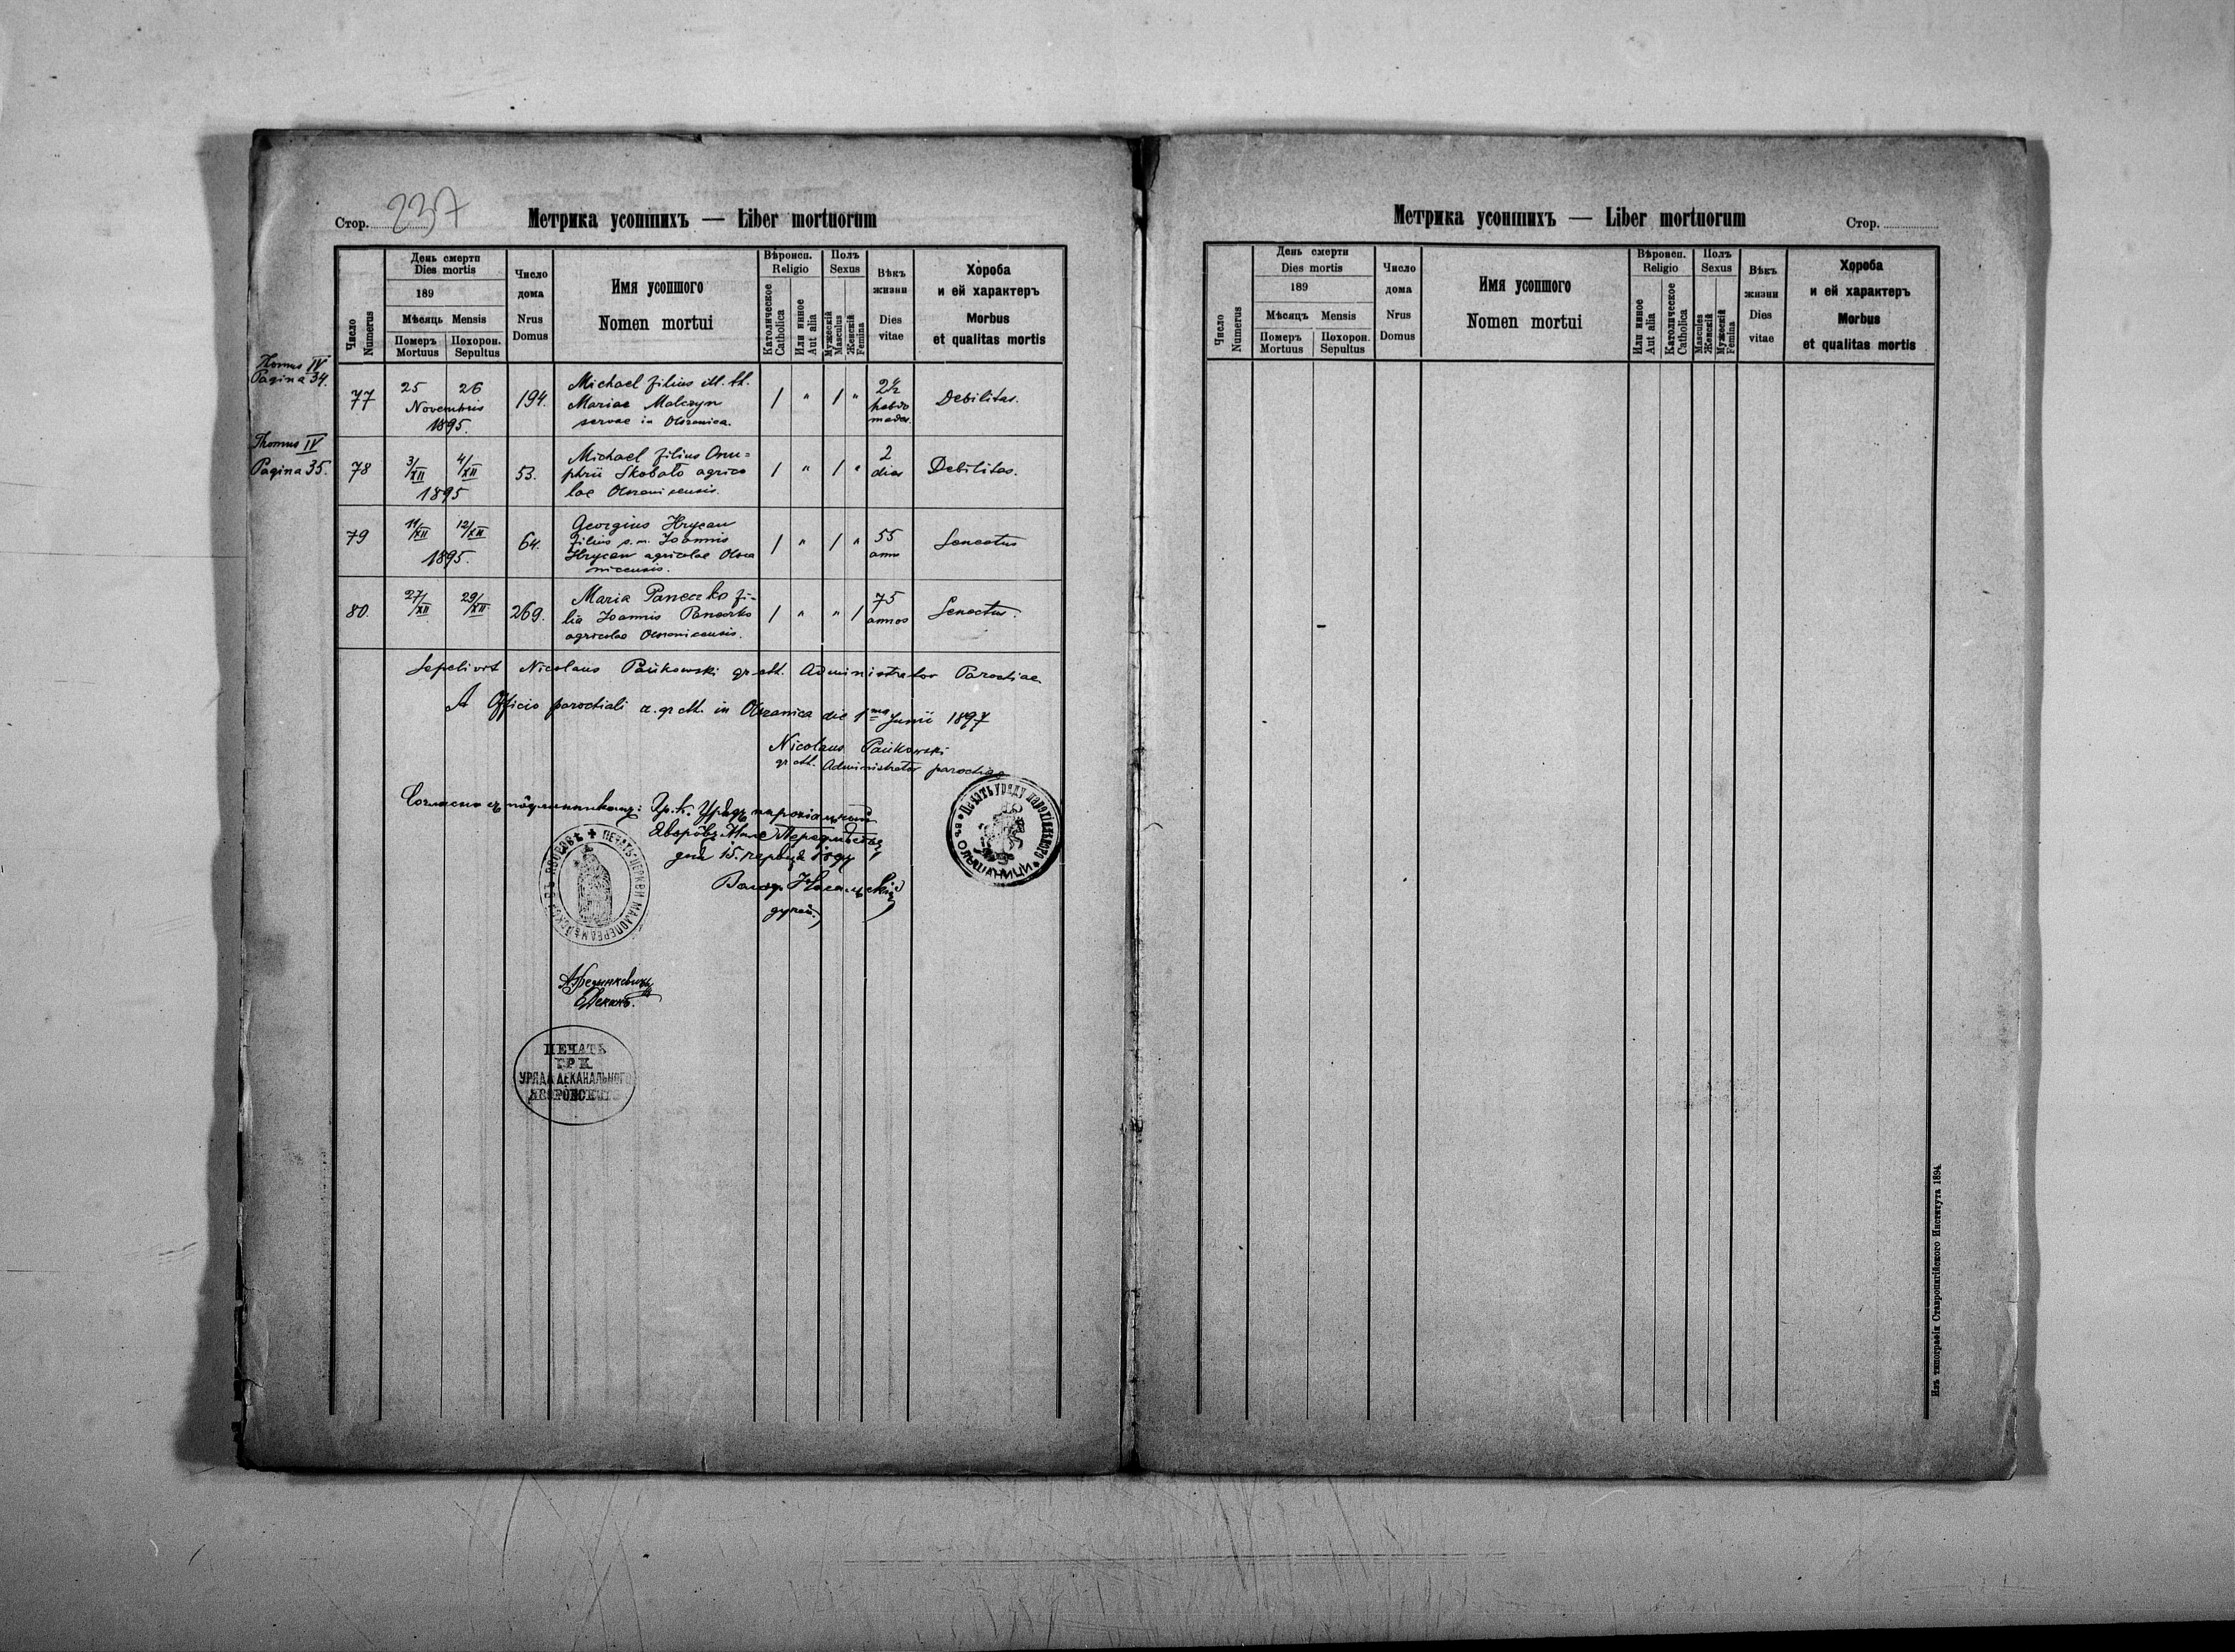 Стор. 237
Метрика усопшихъ — Liber mortuorum
Число
Numerus
День смерти
Dies mortis
189
Мѣсяць Mensis
Померъ
Mortuus
Похорон.
Sepultus
Число
дома
Nrus
Domus
Имя усопшого
Nomen mortui
Вѣроисп.
Religio
Католическое
Catholica
Или инное
Aut alia
Полъ
Sexus
Мужескій
Masculus
Женскій
Femina
Вѣкъ
жизни
Dies
vitae
Хороба
и ей характеръ
Morbus
et qualitas mortis
Thomus IV
Pagina 34.
77
25 26
Novembris
1895.
194.
Michael filius ill. th.
Mariae Malczyn
servae in Olszanica.
1 " 1 "
2½
hebdo
mades
Debilitas.
Thomus IV
Pagina 35.
78
3/XII 4/XII
1895
53.
Michael filius Onu=
phrii Skobało agrico
lae Olszanicensis.
1 " 1 "
2
dies
Debilitas.
79
11/XII 12/XII
1895.
64.
Georgius Hrycan
filius p. m. Joannis
Hrycan agricolae Olsza
nicensis.
1 " 1 "
55
anno
Senectus
80.
27/XII 29/XII
269.
Maria Paneczko fi-
lia Joannis Paneczko
agricolae Olszanicensis.
1 " " 1
75
annos
Senectus.
Sepelivit Nicolaus Pańkowski gr. cth. Administrator Parochiae
A Officio parochiali r. gr. cth. in Olszanica die 1ma Junii 1897
Nicolaus Pańkowski
gr. cth. Administrator parochiae
Согласно съ подлинникомъ: Гр. к. Урядъ парохіальный
Яворôвъ Мале Передмѣстье
дня 15. червця
Волод.
ПЕЧАТЬ ЦЕРКВИ МАЛОПЕРЕДМѢЙСКОИ ВЪ ЯВОРОВѢ
Печать уряду парохіяльного въ ОЛЬШАНИЦИ
Деканъ.
ПЕЧАТЬ
ГР. К.
УРЯДА ДЕКАНАЛЬНОГО
ЯВОРÔВСКОГО
Метрика усопшихъ — Liber mortuorum
Стор.
Число
Numerus
День смерти
Dies mortis
189
Мѣсяцъ Mensis
Померъ
Mortuus
Похорон.
Sepultus
Число
дома
Nrus
Domus
Имя усопшого
Nomen mortui
Вѣроисп.
Religio
Или инное
Aut alia
Католическое
Catholica
Полъ
Sexus
Masculus
Женскій
Мужескій
Femina
Вѣкъ
жизни
Dies
vitae
Хороба
и ей характеръ
Morbus
et qualitas mortis
Изъ типографіи Ставропигійского Института 1894.